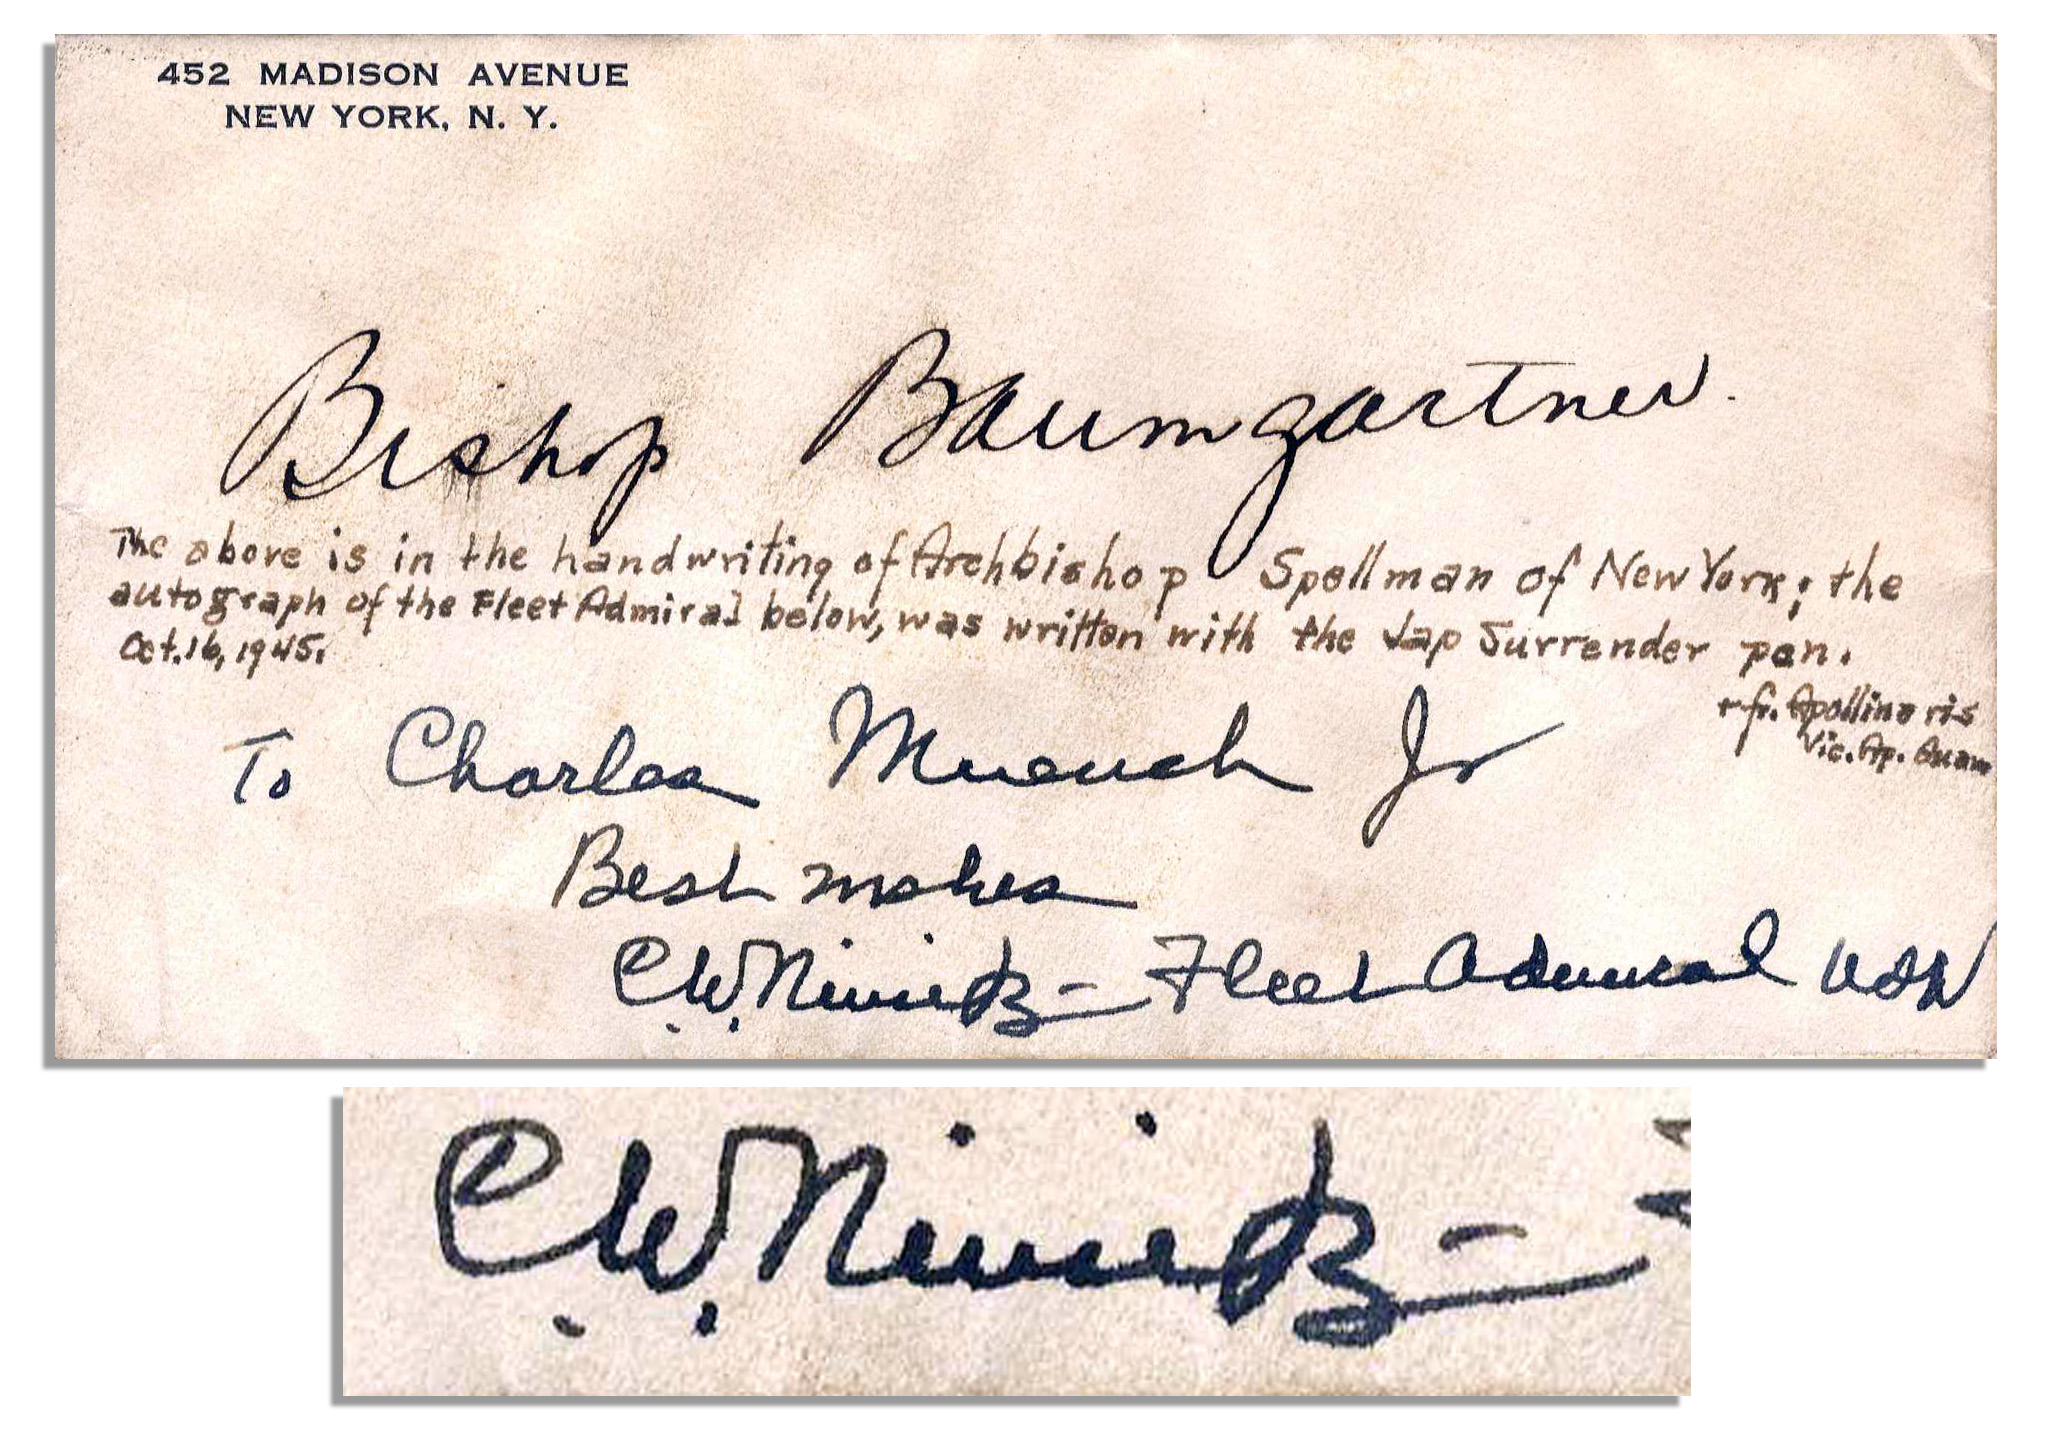 452 MADISON AVENUE
NEW YORK, N. Y.
Bishop Baumgartner.
The above is in the handwriting of Archbishop Spellman of New York; the
autograph of the Fleet Admiral below, was written with the Jap Surrender pen.
Oct. 16, 1945.
+ fr. Apollinaris
Vic. Ap. Guam
To Charles Muench Jr
Best wishes
C.W. Nimitz - Fleet Admiral USN
C.W. Nimitz -